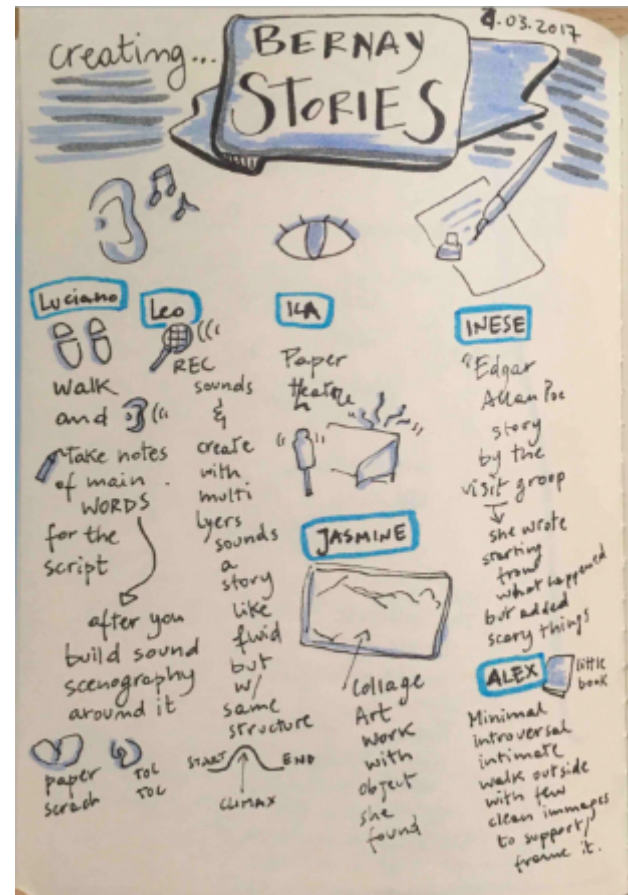 creating...
BERNAY
STORIES
4.03.2017
Luciano
walk
and
Take notes
of main
WORDS
for the
script
after you
build sound
scenography
around it
paper
scrach
TOC
TOC
Leo
REC
sounds
&
create
with
multi
lyers
sounds
a
story
like
fluid
but
w/
same
structure
START
END
CLIMAX
ILA
Paper
theatre
JASMINE
Collage
Art
work
with
object
she
found
INESE
"Edgar
Allan Poe
story
by the
visit groop
she wrote
starting
from
what happened
but added
scary things
ALEX
little
book
Minimal
introversal
intimate
walk outside
with few
clean immages
to support/
frame it.